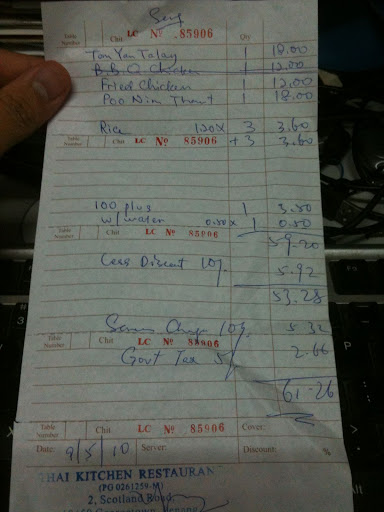 Table Number Chit LC Nº 85906 Qty
Tom Yam Talay 1 18.00
B.B.Q Chicken 1 12.00
Fried Chicken 12.00
Poo Nim Thort 1 18.00
Rice 1.20x 3 3.60
Table Number Chit LC Nº 85906 +3 3.60
100 plus 1 3.50
w/water 0.50x 1 0.50
Table Number Chit LC Nº 85906 59.20
Less Discount 10% 5.92
53.28
Service Charge 10% 5.32
Table Number Chit LC Nº 85906 2.66
Govt Tax 5%
61.26
Table Number Chit LC Nº 85906 Cover:
Date: 9/5/10 Server: Discount: %
THAI KITCHEN RESTAURAN
(PG 0261259-M)
2, Scotland Road,